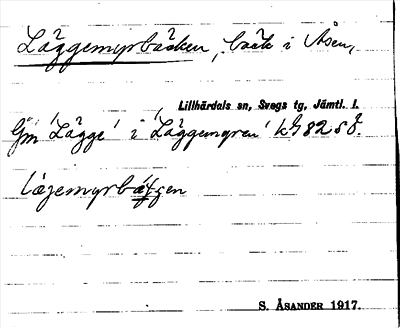 Läggemyrbäcken, bäck i Åsen,
Lillhärdals sn, Svegs tg, Jämtl. l.
Jfr 'Lägge' i 'Läggemyren'
S. ÅSANDER 1917.